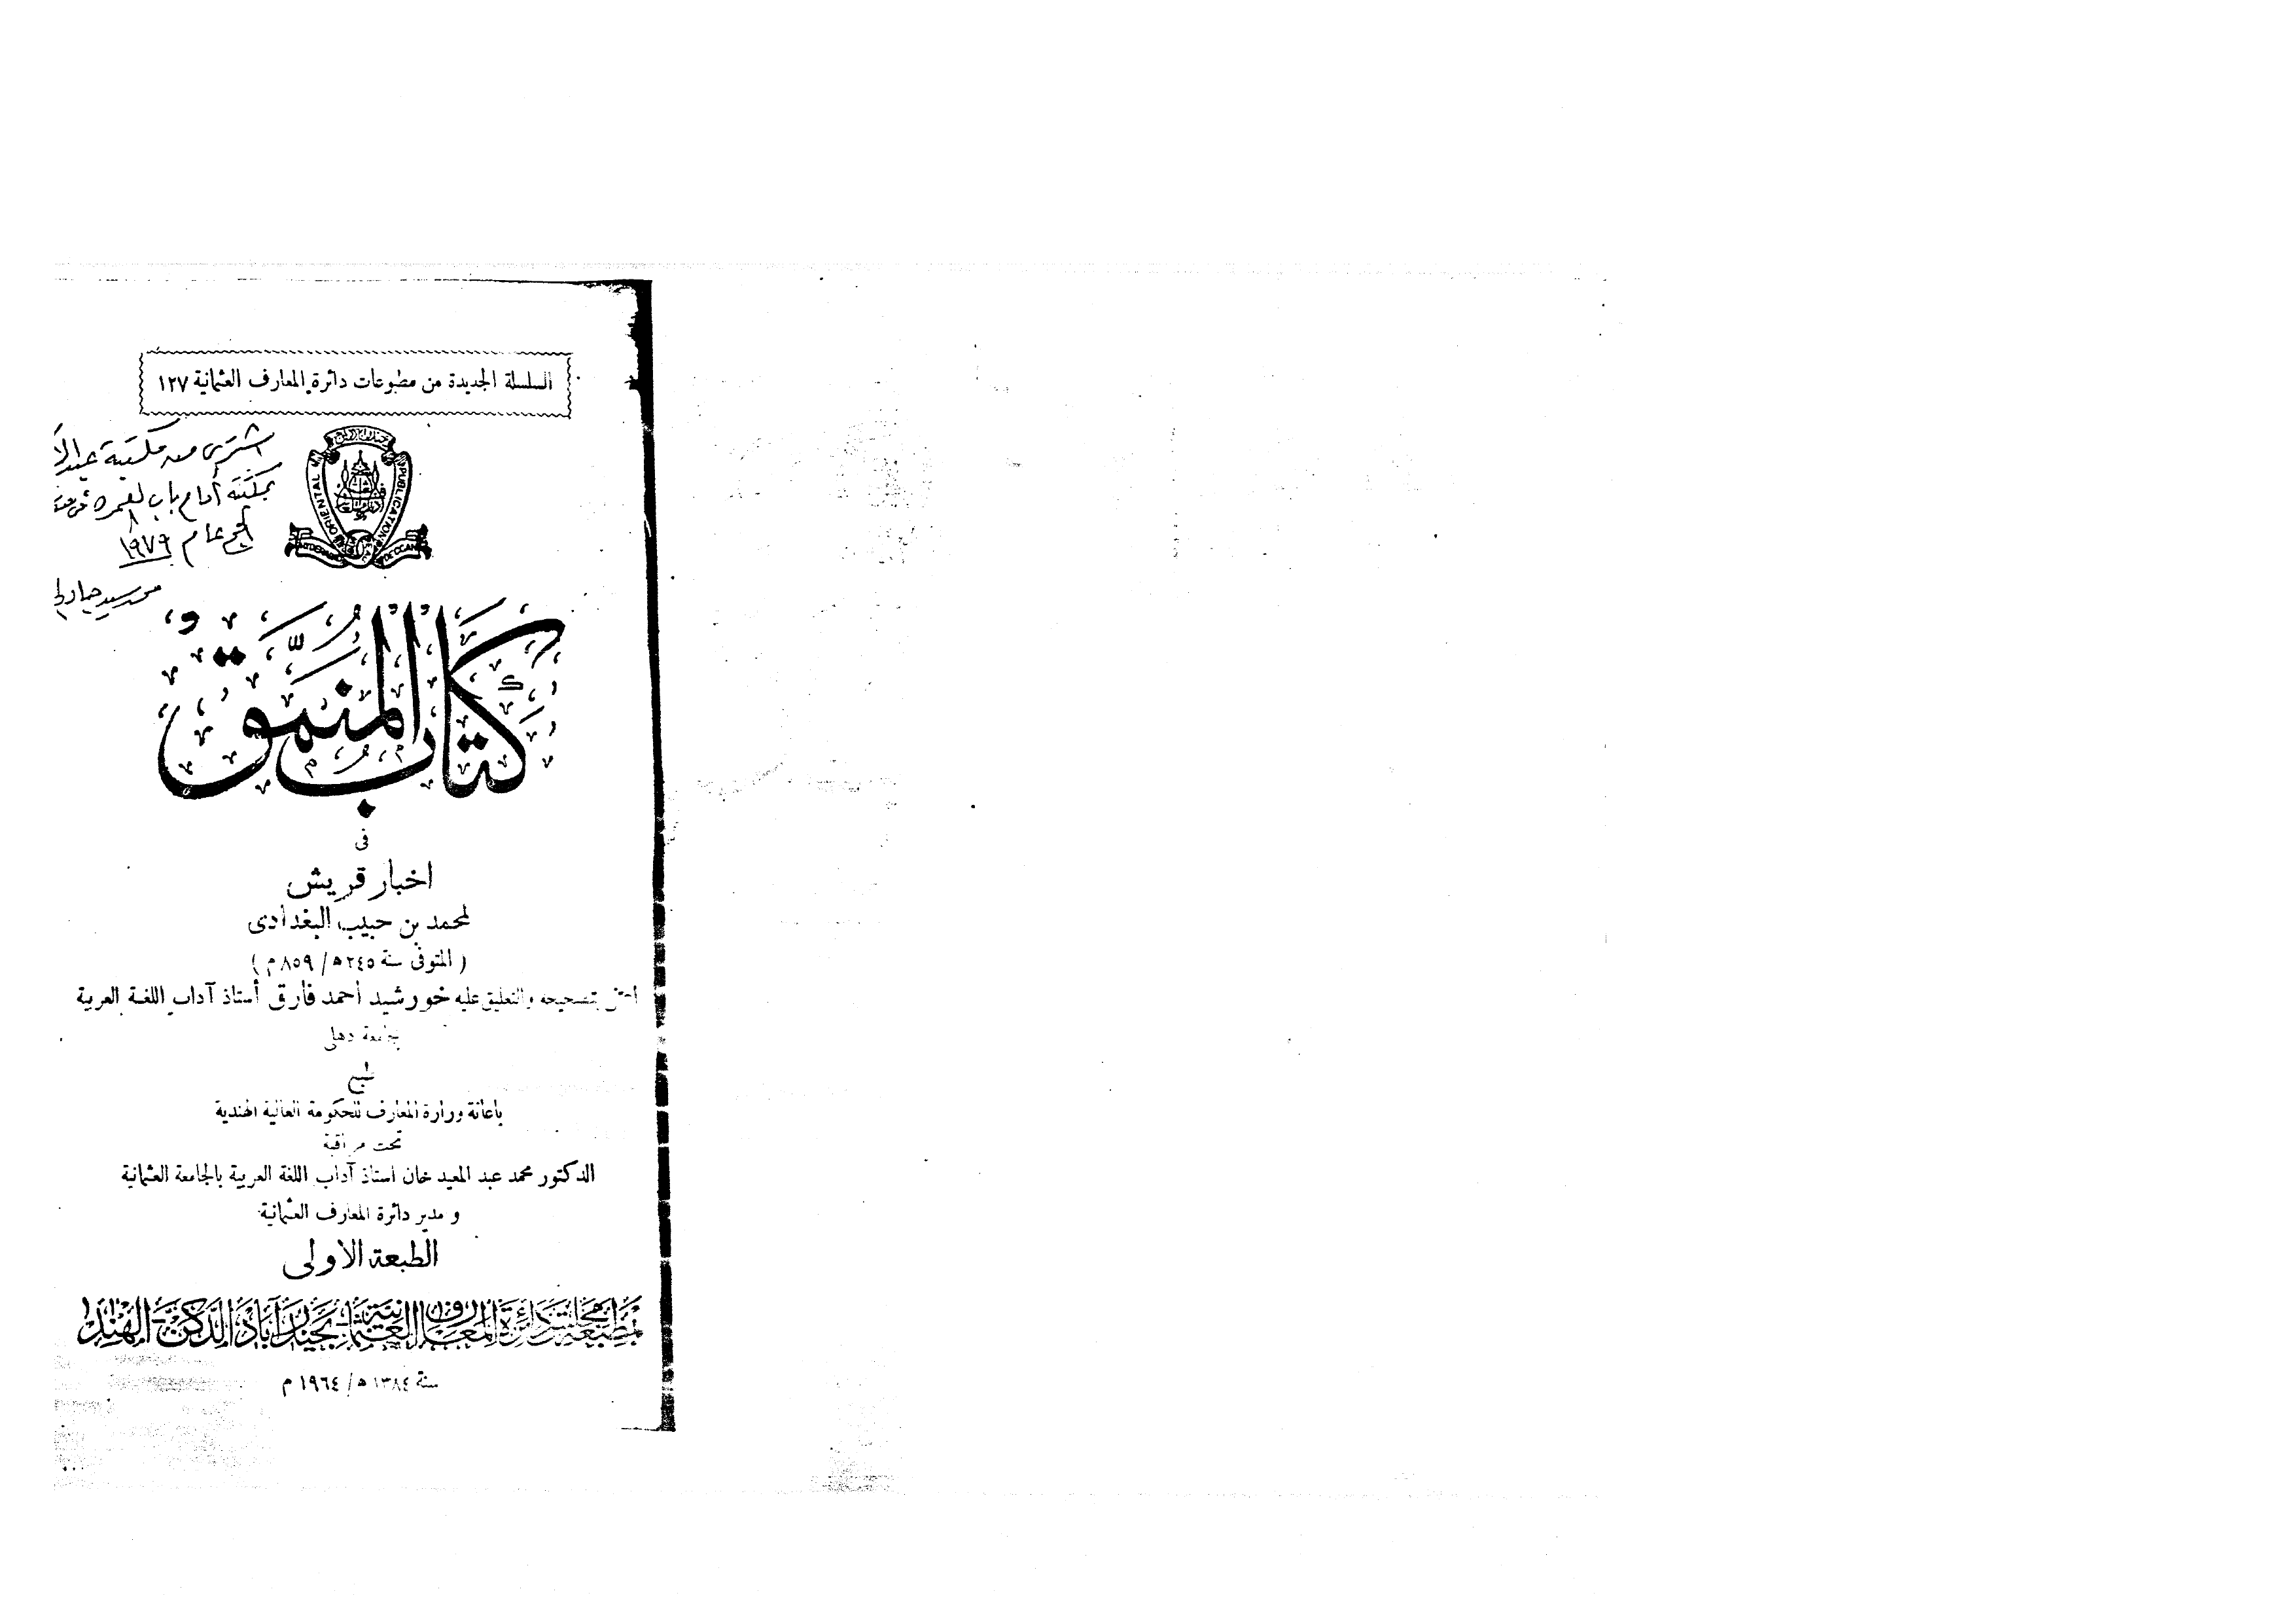 السلسلة الجديدة من مطبوعات دائرة المعارف العثمانية ١٢٧
اشترى من مكتبة
بمكتبة أمام باب العمرة
الحج عام ١٩٧٩
محمد سيد
ORIENTAL PUBLICATION
HYDERABAD DECCAN
كتاب المنمق
فى
اخبار قريش
لمحمد بن حبيب البغدادى
( المتوفى سنة ٢٤٥ ه / ٨٥٩ م )
اعتنى بتصحيحه والتعليق عليه خورشيد أحمد فارق أستاذ آداب اللغة العربية
بجامعة دهلى
طبع
باعانة وزارة المعارف للحكومة العالية الهندية
تحت مراقبة
الدكتور محمد عبد المعيد خان استاذ آداب اللغة العربية بالجامعة العثمانية
و مدير دائرة المعارف العثمانية
الطبعة الاولى
بمطبعة مجلس دائرة المعارف العثمانية بحيدرآباد الدكن الهند
سنة ١٣٨٤ ه / ١٩٦٤ م